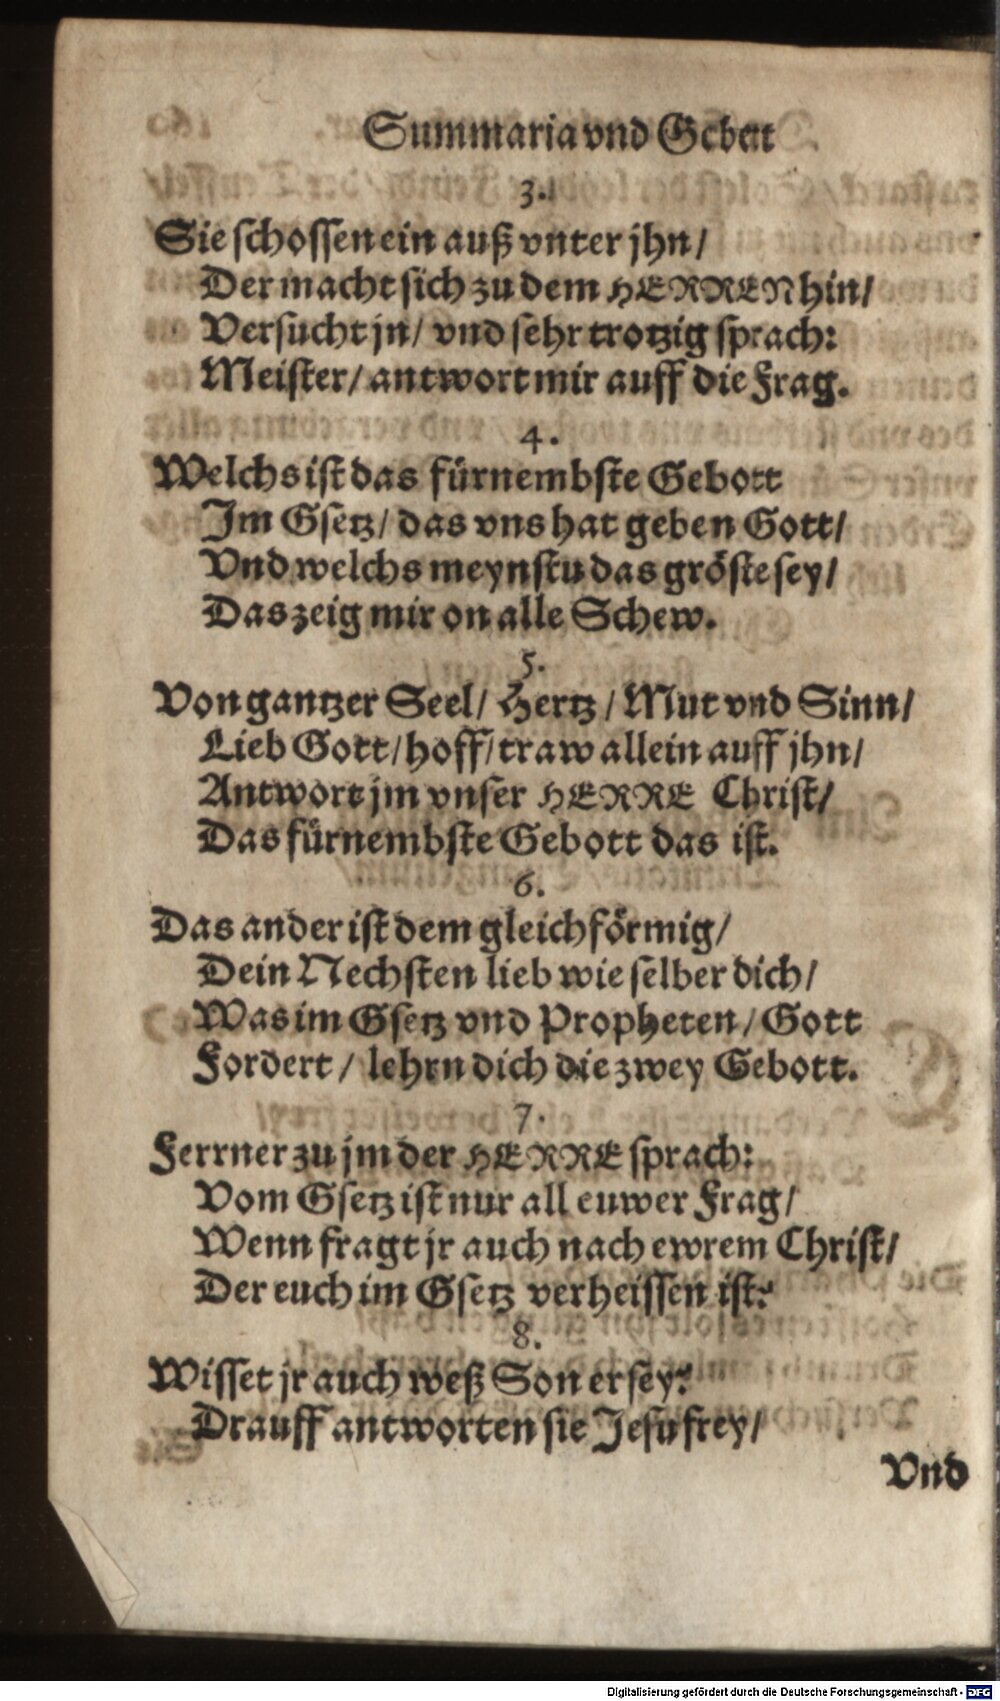 Summaria vnd Gebett
3.
Sie schossen ein auß vnter jhn/
Der macht sich zu dem HERREN hin/
Versucht jn/ vnd sehr trotzig sprach:
Meister/ antwort mir auff die Frag.
4.
Welchs ist das fürnembste Gebott
Im Gsetz/ das vns hat geben Gott/
Vnd welchs meynstu das gröste sey/
Das zeig mir on alle Schew.
5.
Von gantzer Seel/ Hertz/ Mut vnd Sinn/
Lieb Gott/ hoff/ traw allein auff jhn/
Antwort jm vnser HERRE Christ/
Das fürnembste Gebott das ist.
6.
Das ander ist dem gleichförmig/
Dein Nechsten lieb wie selber dich/
Was im Gsetz vnd Propheten/ Gott
Fordert/ lehrn dich die zwey Gebott.
7.
Ferrner zu jm der HERRE sprach:
Vom Gsetz ist nur all euwer Frag/
Wenn fragt jr auch nach ewrem Christ/
Der euch im Gsetz verheissen ist?
8.
Wisset jr auch weß Son er sey?
Drauff antworten sie Jesu frey/
Vnd
Digitalisierung gefördert durch die Deutsche Forschungsgemeinschaft - DFG